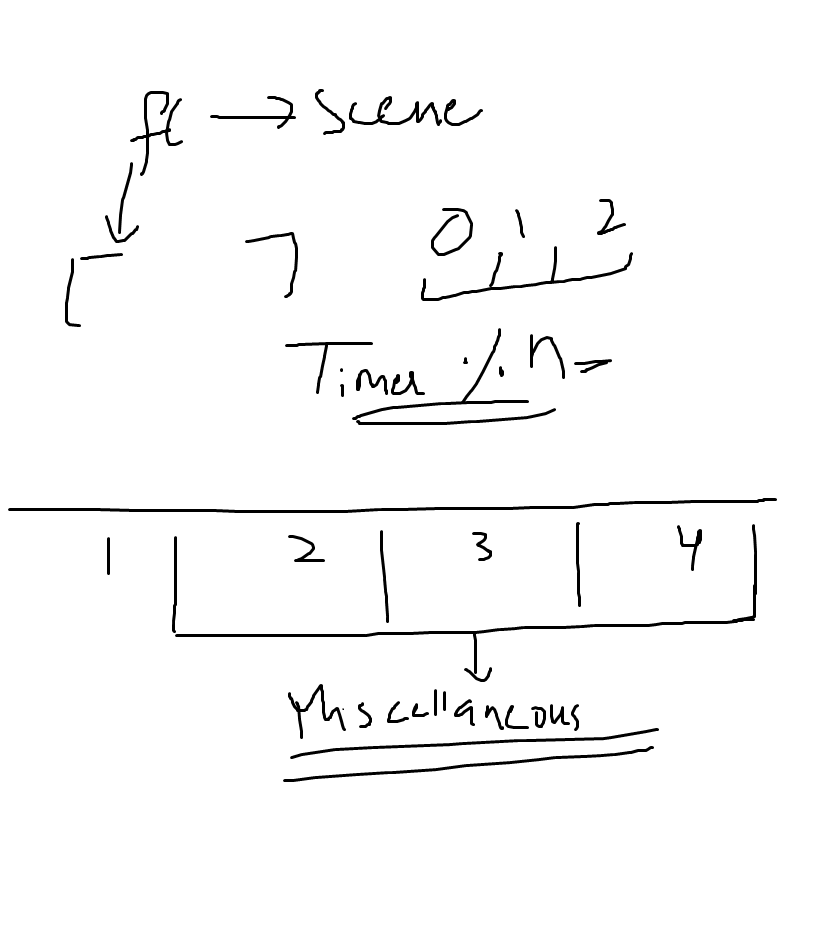 → Scene
0 1 2
Timer % n
1 2 3 4
Miscellaneous